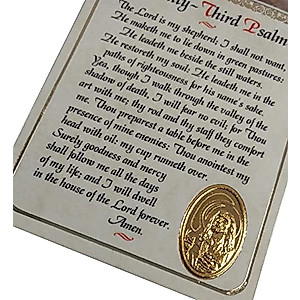 ty-Third Psalm
The Lord is my shepherd, I shall not want,
He maketh me to lie down in green pastures.
He leadeth me beside the still waters.
He restoreth my soul; He leadeth me in the
paths of righteousness for his name's sake.
Yea, though I walk through the valley of the
shadow of death, I will fear no evil; for Thou
art with me; thy rod and thy staff they comfort
me. Thou preparest a table before me in the
presence of mine enemies: Thou anointest my
head with oil: my cup runneth over.
Surely goodness and mercy
shall follow me all the days
of my life; and I will dwell
in the house of the Lord forever.
Amen.